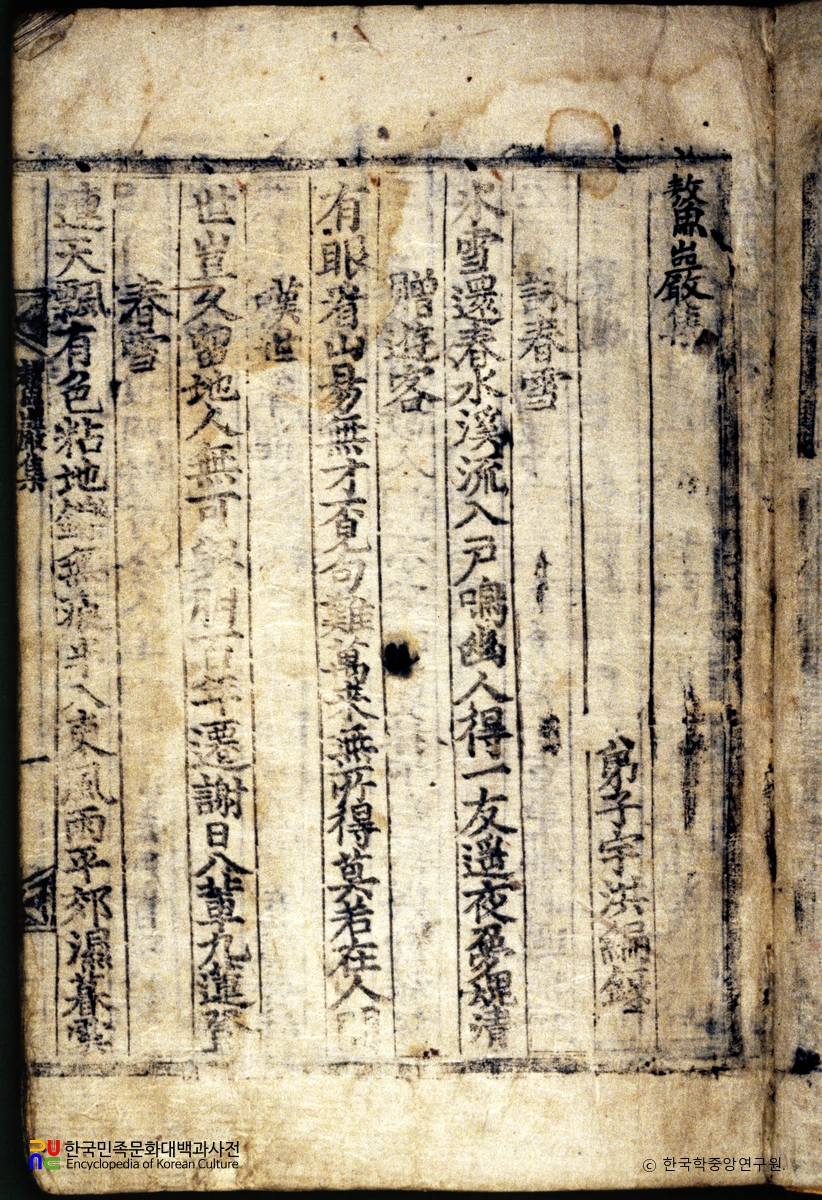 鰲巖集
弟子宇洪編錄
詠春雪
氷雪還春水溪流入戶鳴幽人得一友遥夜夢魂清
贈遊客
有眼看山易無才覓句難萬無所得莫若在人間
嘆世
世豈久留地人無可與朋百年遷謝日八輩九蓮登
春雪
連天飄有色粘地銷無痕半入東風雨平郊濕暮雲
鰲巖集 一
한국민족문화대백과사전
Encyclopedia of Korean Culture
© 한국학중앙연구원